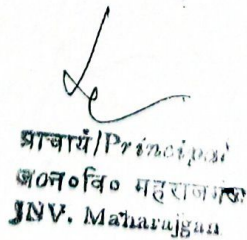 प्राचार्य/Principal
ज०न०वि० महराजगंज
JNV. Maharajgan